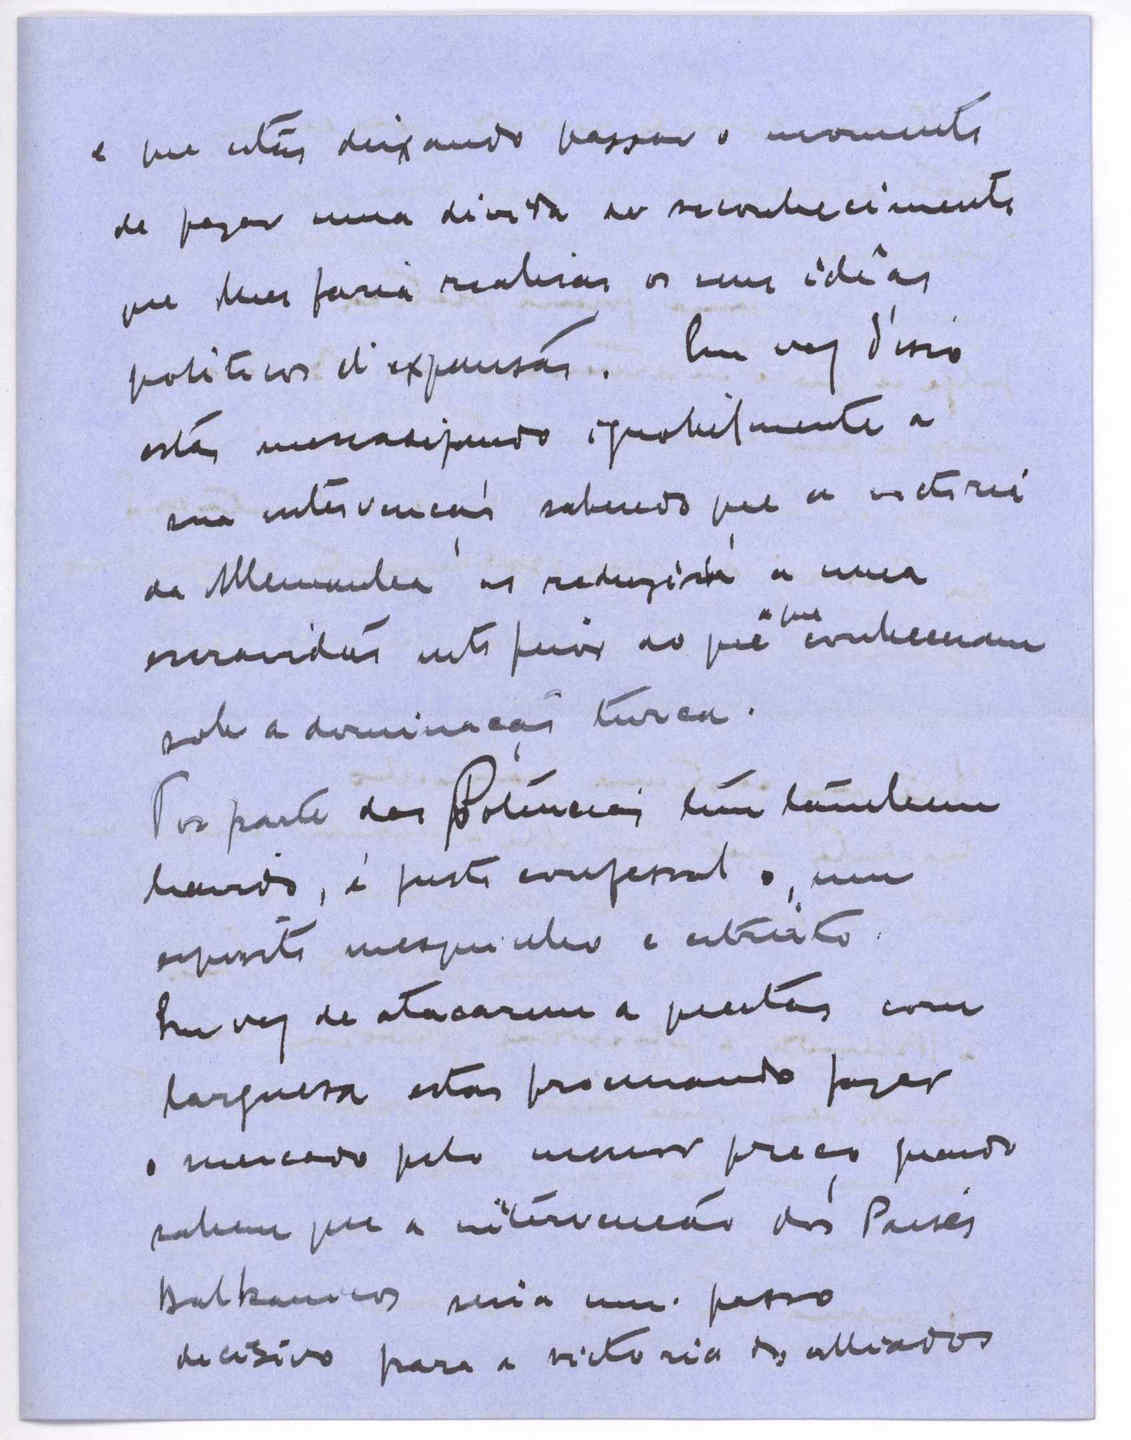 e que estão deixando passar o momento
de pagar uma divida de reconhecimento
que lhes faria realisar os seus ideáes
politicos d'expansão. Em vez d'isso
estão mercadejando ignobilmente a
sua intervenção sabendo que a victoria
da Allemanha os reduziria a uma
escravidão inda peior do que a que conheceram
sob a dominação turca.
Por parte das Potencias tem tambem
havido, é justo confessal-o, um
espirito mesquinho e estreito.
Em vez de atacarem a questão com
larguesa estão procurando fazer
o mercado pelo menor preço quando
sabem que a intervenção dos Paises
Balkanicos seria um passo
decisivo para a victoria dos alliados